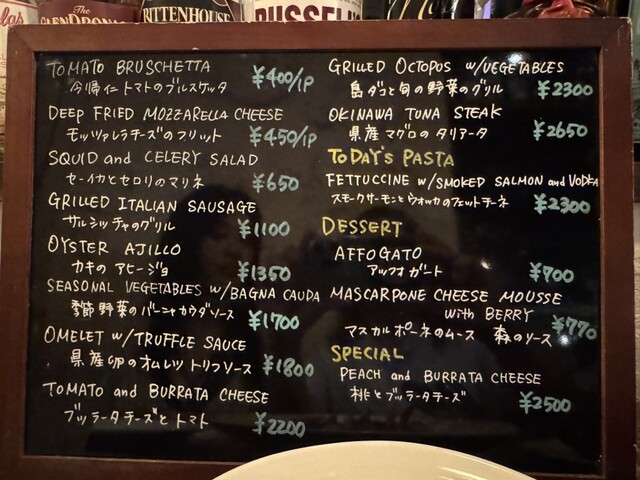 The
GLENDRONACH
RITTENHOUSE
RUSSELL'S
TOMATO BRUSCHETTA
今帰仁トマトのブルスケッタ ¥400/1P
DEEP FRIED MOZZARELLA CHEESE
モッツァレラチーズのフリット ¥450/1P
SQUID and CELERY SALAD
セーイカとセロリのマリネ ¥650
GRILLED ITALIAN SAUSAGE
サルシッチャのグリル ¥1100
OYSTER AJILLO
カキのアヒージョ ¥1350
SEASONAL VEGETABLES w/BAGNA CAUDA
季節野菜のバーニャカウダソース ¥1700
OMELET w/TRUFFLE SAUCE
県産卵のオムレツ トリフソース ¥1800
TOMATO and BURRATA CHEESE
ブッラータチーズとトマト ¥2200
GRILLED OCTOPUS w/VEGETABLES
島ダコと旬の野菜のグリル ¥2300
OKINAWA TUNA STEAK
県産マグロのタリアータ ¥2650
TODAY'S PASTA
FETTUCCINE w/SMOKED SALMON and VODKA
スモークサーモンとウォッカのフェットチーネ ¥2300
DESSERT
AFFOGATO
アッフォガート ¥700
MASCARPONE CHEESE MOUSSE
with BERRY
マスカルポーネのムース 森のソース ¥770
SPECIAL
PEACH and BURRATA CHEESE
桃とブッラータチーズ ¥2500